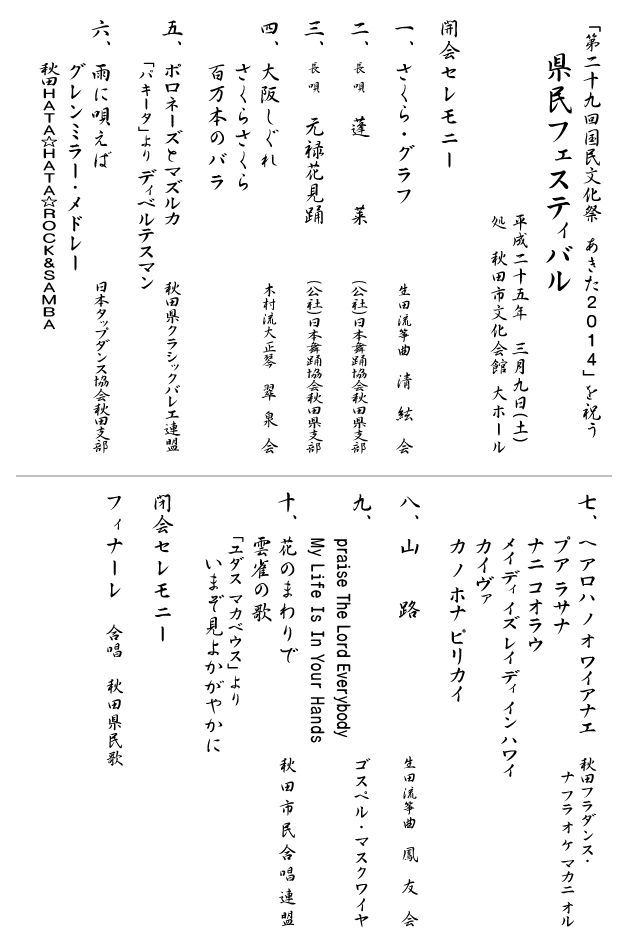 「第二十九回国民文化祭 あきた２０１４」を祝う
県民フェスティバル
平成二十五年 三月九日(土)
処 秋田市文化会館 大ホール
開会セレモニー
一、さくら・グラフ 生田流箏曲 清絃会
二、長唄 蓬莱 (公社)日本舞踊協会秋田県支部
三、長唄 元禄花見踊 (公社)日本舞踊協会秋田県支部
四、大阪しぐれ
さくらさくら
百万本のバラ 木村流大正琴 翠泉会
五、ポロネーズとマズルカ 秋田県クラシックバレエ連盟
「パキータ」より ディベルテスマン
六、雨に唄えば 日本タップダンス協会秋田支部
グレンミラー・メドレー
秋田HATA☆HATA☆ROCK&SAMBA
七、ヘアロハ ノ オ ワイアナエ 秋田フラダンス・
ナ フラ オ ケ マカニ オル
プア ラサナ
ナニ コオラウ
メイ ディ イズ レイ ディ イン ハワイ
カイヴァ
カ ノ ホナ ピリカイ
八、山路 生田流箏曲 鳳友会
九、praise The Lord Everybody ゴスペル・マスクワイヤ
My Life Is In Your Hands
十、花のまわりで 秋田市民合唱連盟
雲雀の歌
「ユダス マカベウス」より
いまぞ見よかがやかに
閉会セレモニー
フィナーレ 合唱 秋田県民歌